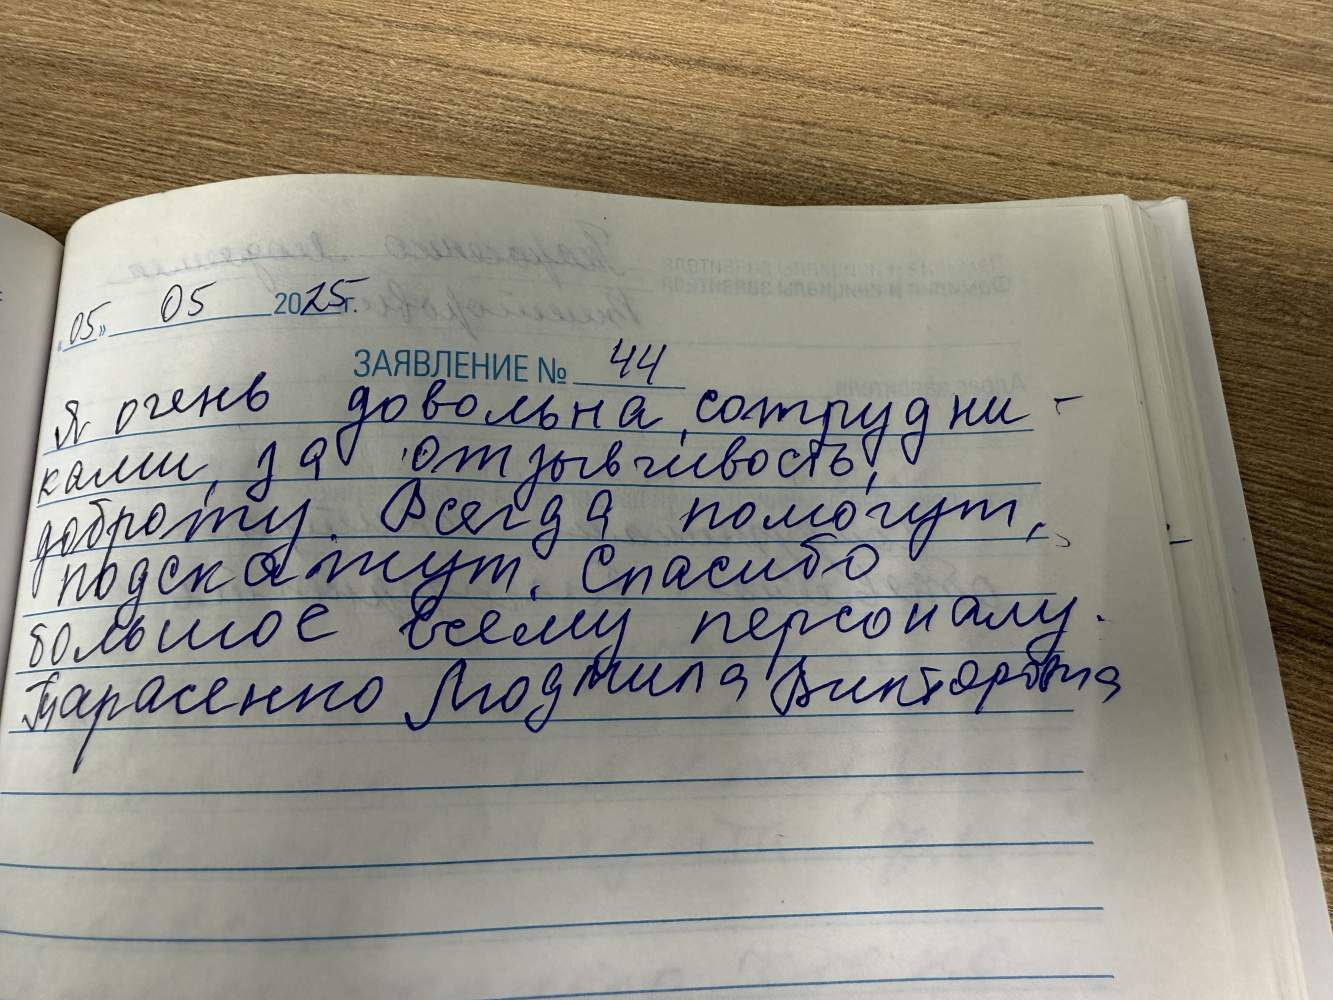 «05» 05 2025 г.
ЗАЯВЛЕНИЕ № 44
Я очень довольна, сотрудни-
ками, за отзывчивость,
доброту. Всегда помогут,
подскажут. Спасибо
большое всему персоналу.
Тарасенко Людмила Викторовна